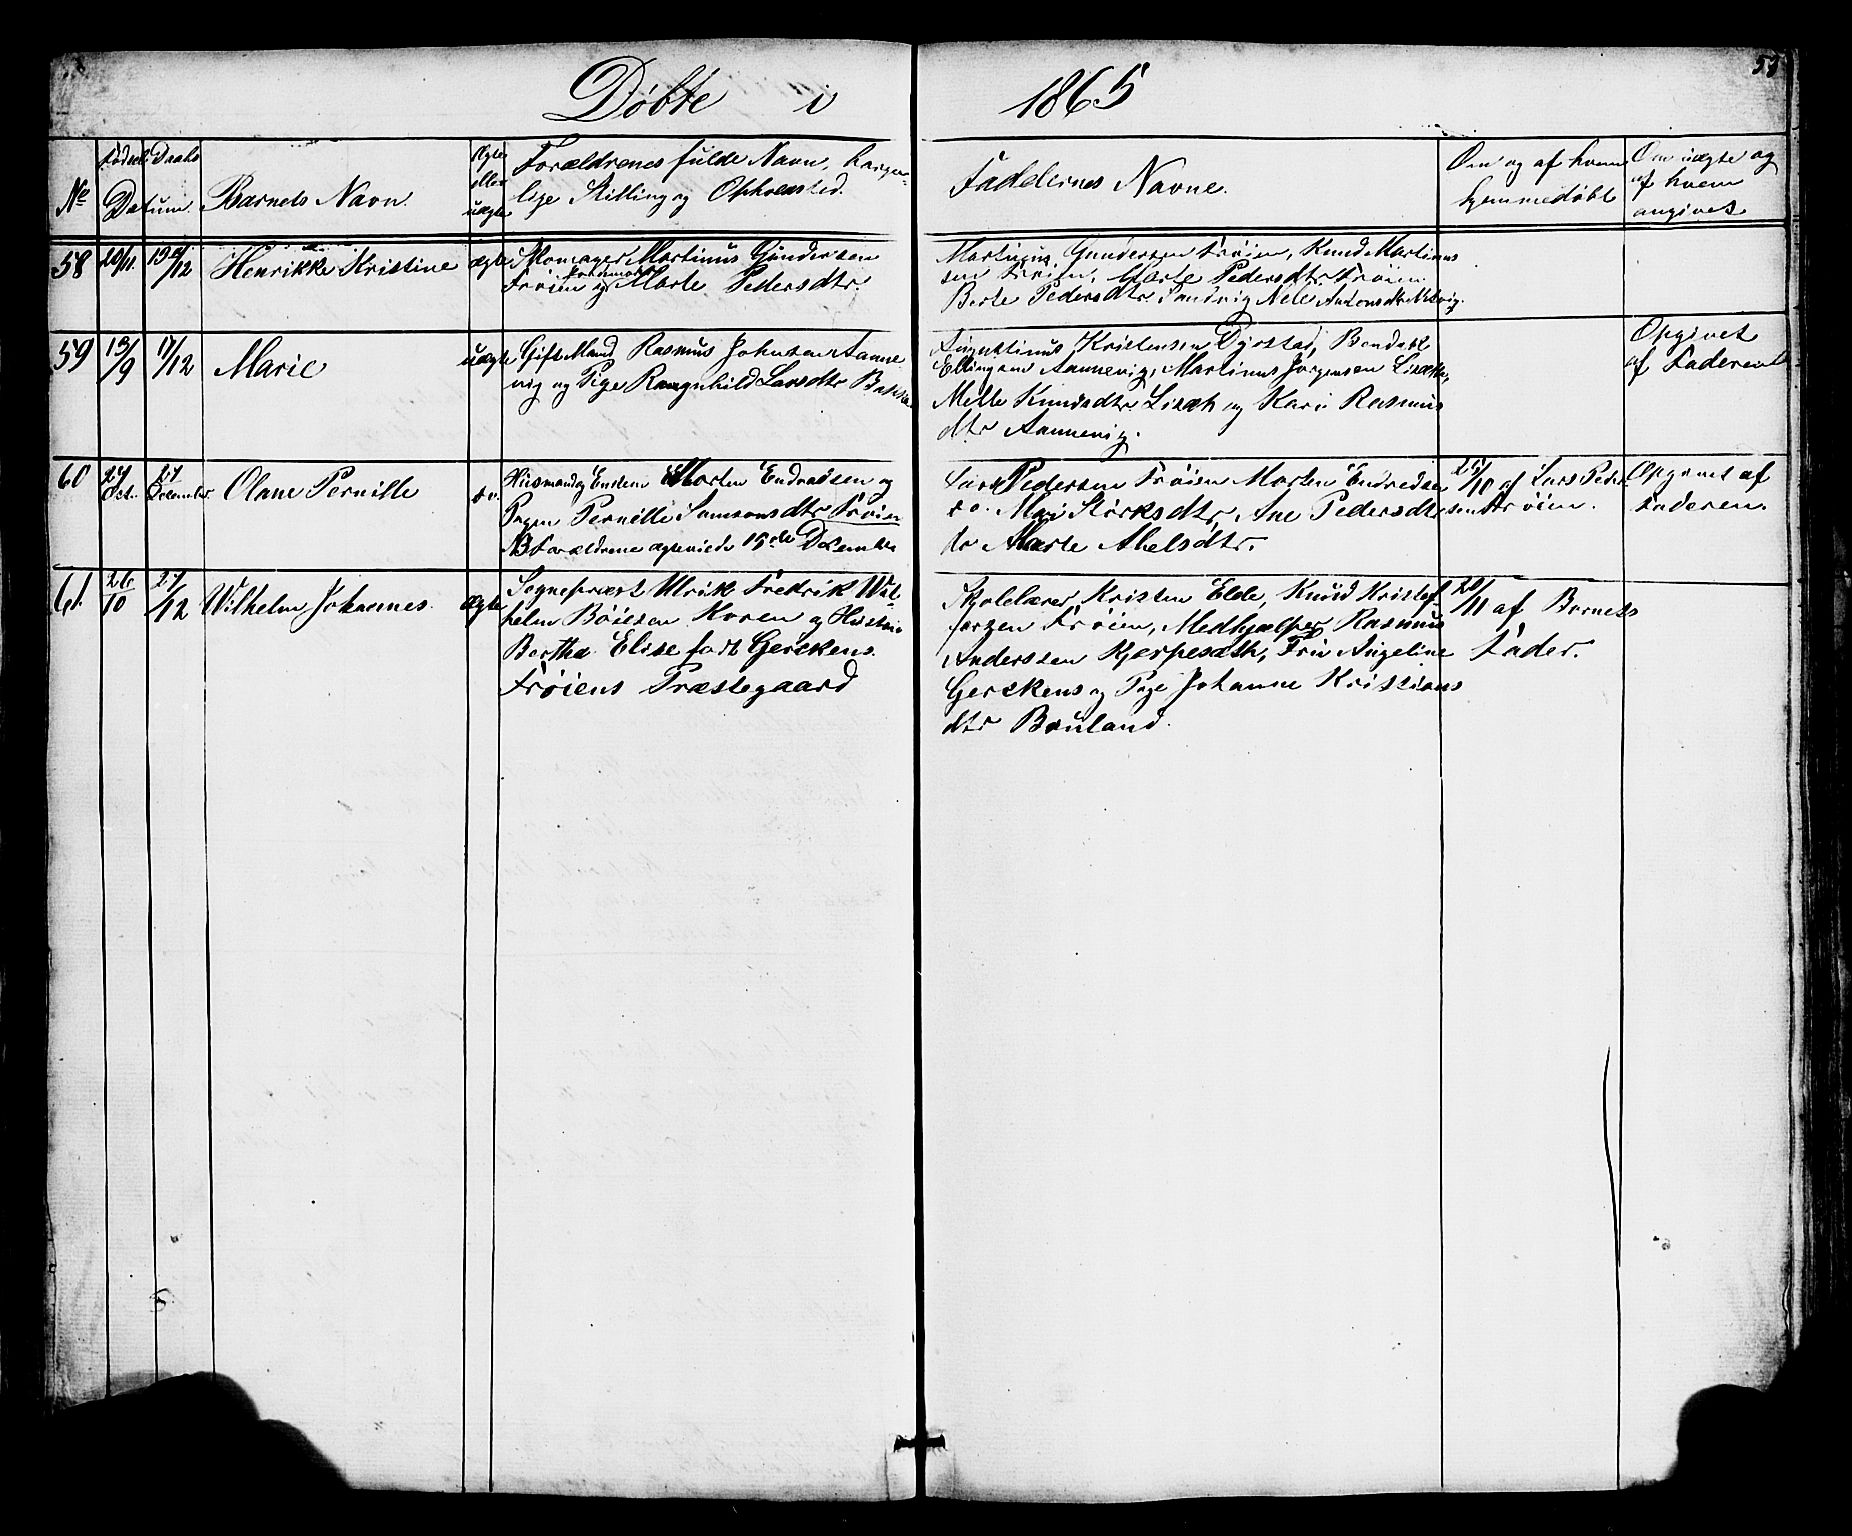 Døbte i 1865
55
No
Fødsels Daabs
Datum.
Barnets Navn.
Ægte
eller
uægte
Forældrenes fulde Navn, borger-
lige Stilling og Opholdssted.
Faddernes Navne.
Om og af hvem
hjemmedøbt
Om uægte og
af hvem
angivet
58 20/11. 12 Henrikke Kristine ægte
Skomager Martinus Gundersen
Frøien og Marte Pedersdtr.
Martinus Gundersen Frøien, Knud Martinus
sen Frøien, Marte Pedersdtr Frøien
Berte Pedersdtr Sandvig Nele Antonsdtr
59 13/9 17/12 Marie uægte
Gift Mand Rasmus Johnsen Aanne
vig og Pige Ragnhild Larsdtr
Augustinus Kristensen Dyrstad, Bendikt
Ellingsen Aannevig, Martinus Jørgensen
Mille Knudsdtr og Kari Rasmus
dtr Aannevig.
Opgivet
af Faderen
60 27 Oct. 27 December Olane Pernille do.
Husmand og Enkem Morten Endresen og
Pigen Pernille Samsonsdtr Frøien
NB Forældrene ægteviede 15de December
Lars Pedersen Frøien Morten Endredsen
do. Mari Størksdtr, Ane Pedersdtr
do Marte Abelsdtr.
25/10 af Lars Peder
sen Frøien.
Opgivet af
Faderen.
61. 26/10 27/12 Wilhelm Johannes. ægte
Sognepræst Ulrik Fredrik Wil-
helm Bøiesen Koren og Hustru
Bertha Elise født Gerckens.
Frøiens Præstegaard
Skolelærer Kristen Elde, Knud Kristof-
fersen Frøien, Medhjælper Rasmus
Anderssen Kjerpeseth, Fru Angeline
Gerckens og Pige Johanne Kristians
dtr Bruland.
20/11 af Barnets
Fader.